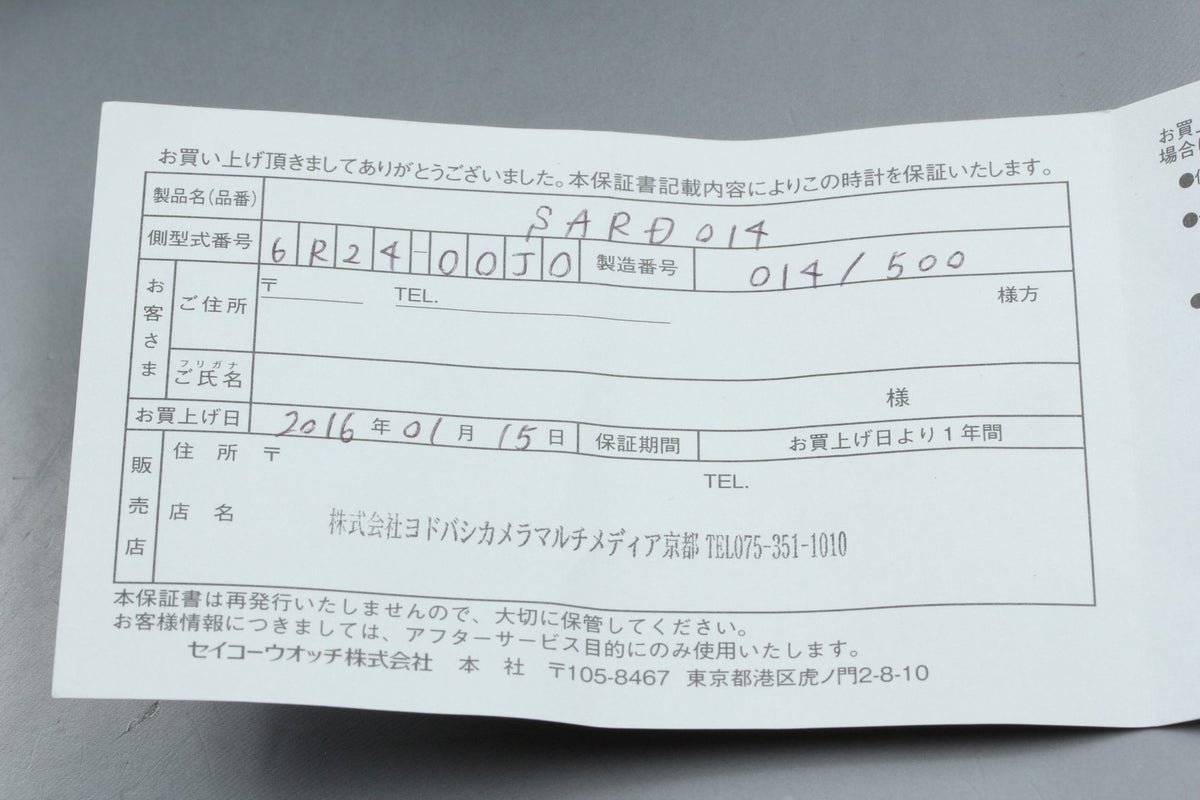 お買い上げ頂きましてありがとうございました。本保証書記載内容によりこの時計を保証いたします。
製品名(品番) SARD014
側型式番号 6R24-00J0 製造番号 014/500
お客さま
ご住所 〒 TEL. 様方
フリガナ
ご氏名 様
お買上げ日 2016年01月15日 保証期間 お買上げ日より1年間
販売店
住所 〒 TEL.
店名 株式会社ヨドバシカメラマルチメディア京都 TEL075-351-1010
本保証書は再発行いたしませんので、大切に保管してください。
お客様情報につきましては、アフターサービス目的にのみ使用いたします。
セイコーウオッチ株式会社 本社 〒105-8467 東京都港区虎ノ門2-8-10
お買
場合